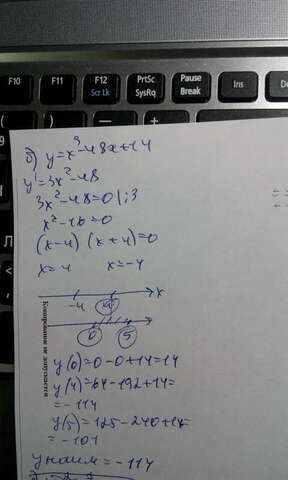 F10 F11 F12 Scr Lk PrtSc SysRq Pause Break Ins
б) y=x³-48x+14
y'=3x²-48
3x²-48=0 |:3
x²-16=0
(x-4) (x+4)=0
x=4 x=-4
-4 4 x
0 5
Копирование не допускается
y(0)=0-0+14=14
y(4)=64-192+14=
=-114
y(5)=125-240+14=
=-101
y наим=-114